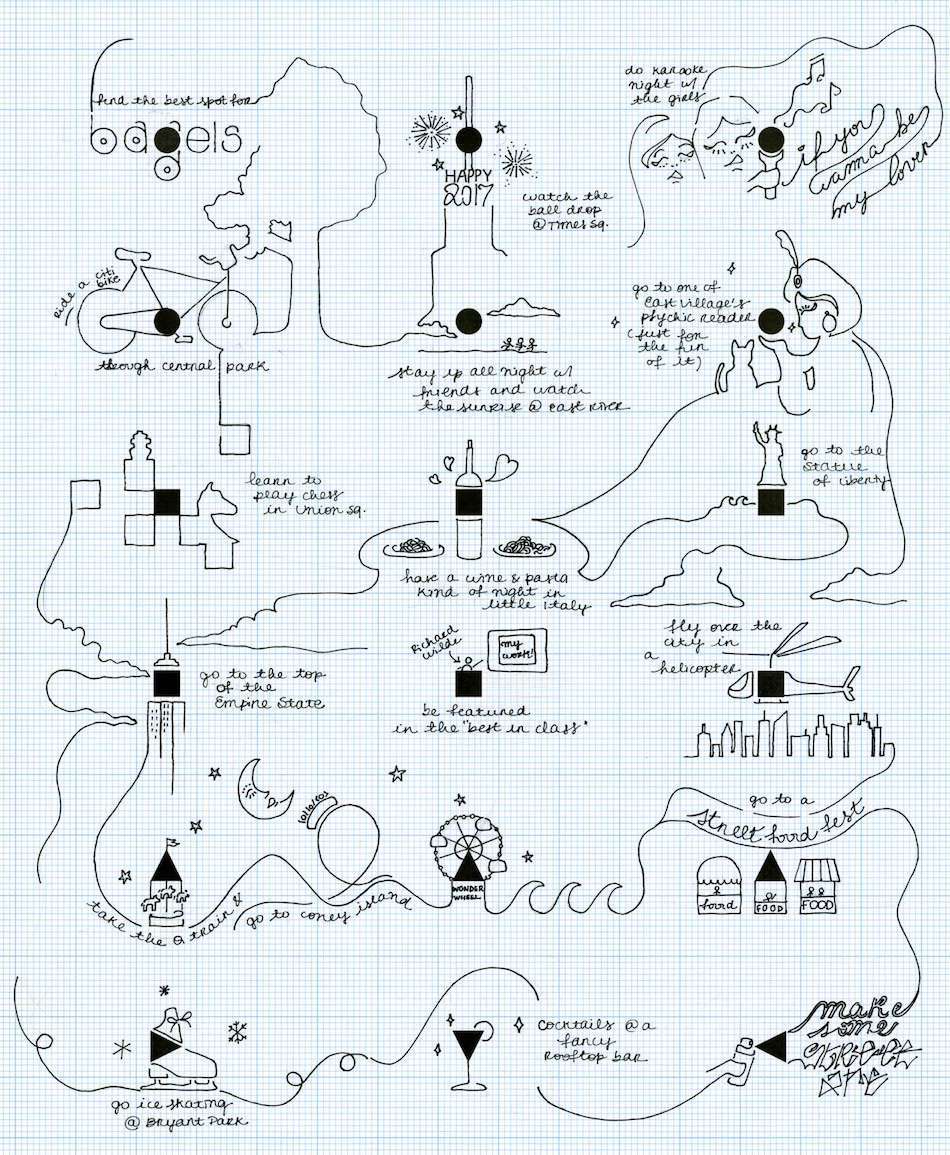 find the best spot for
bagels
do karaoke
night w/
the girls
if you
wanna be
my lover
HAPPY
2017
watch the
ball drop
@ Times Sq.
ride a citi
bike
through central park
stay up all night w/
friends and watch
the sunrise @ East River
go to one of
East Village's
psychic reader
(just for
the fun
of it)
learn to
play chess
in Union Sq.
have a wine & pasta
kind of night in
little Italy
go to the
Statue
of Liberty
go to the top
of the
Empire State
Richard
Wilde
my
work!
be featured
in the "best in class"
fly over the
city in
a helicopter
take the Q train &
go to coney island
WONDER
WHEEL
go to a
street food fest
food
FOOD
FOOD
go ice skating
@ Bryant Park
cocktails @ a
fancy
rooftop bar
make
some
STREET
ART